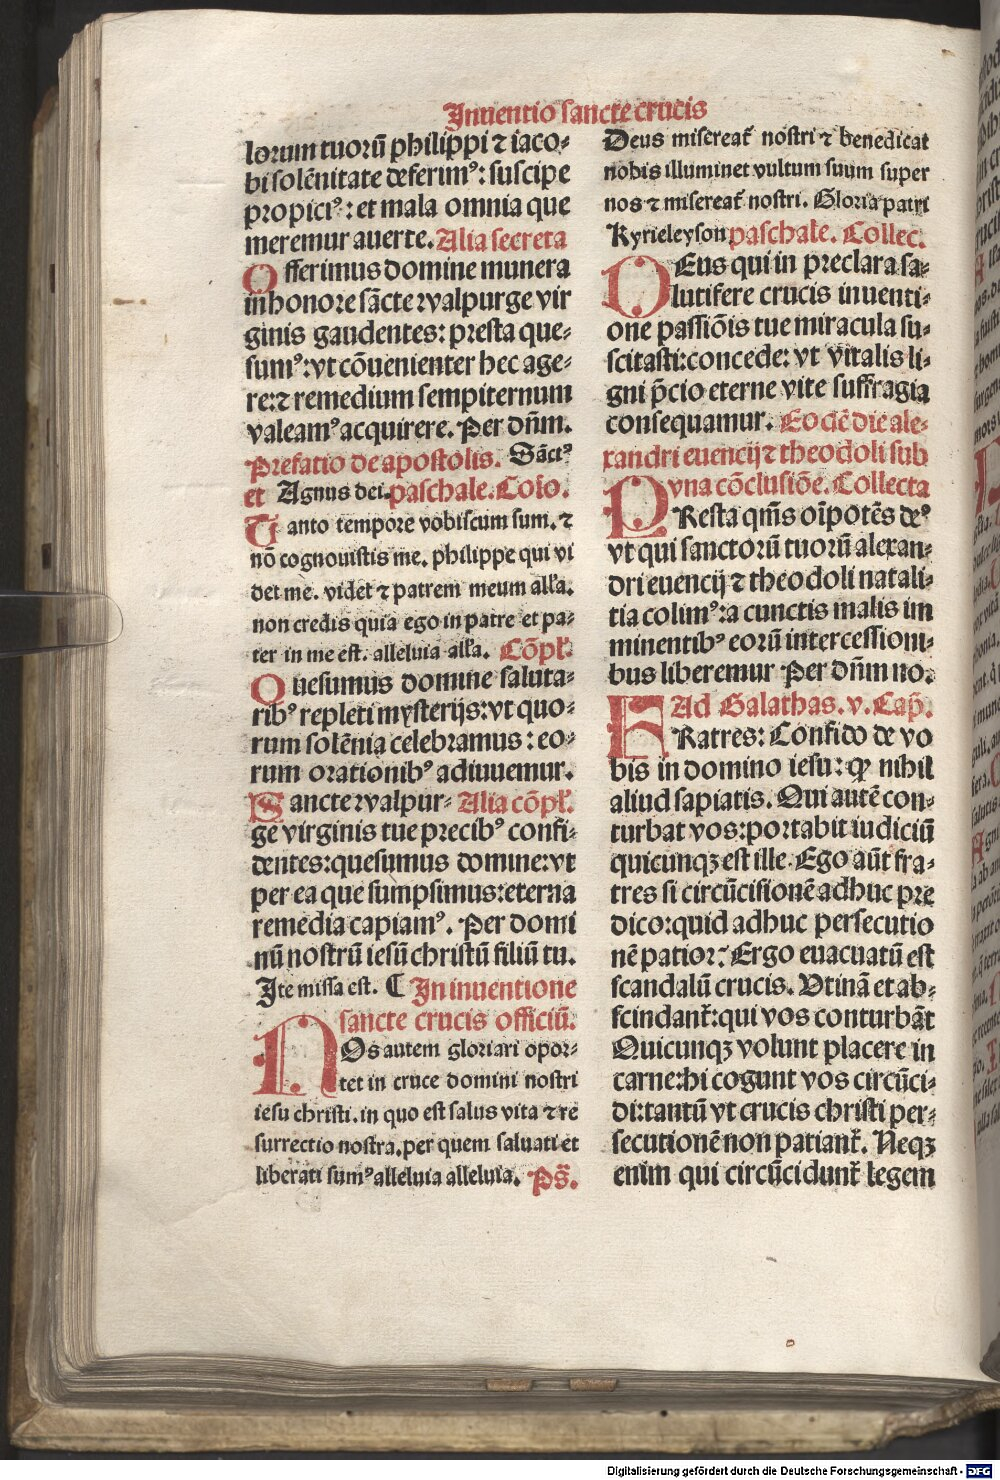 Inuentio sancte crucis
lorum tuorū philippi ⁊ iaco⸗
bi solēnitate deferimꝰ: suscipe
propiciꝰ: et mala omnia que
meremur auerte. Alia secreta
Offerimus domine munera
in honore sācte walpurge vir
ginis gaudentes: presta que⸗
sumꝰ: vt cōuenienter hec age⸗
re: ⁊ remedium sempiternum
valeamꝰ acquirere. Per dn̄m.
Prefatio de apostolis. Sāctꝰ
et Agnus dei. paschale. Cōio.
Tanto tempore vobiscum sum. ⁊
nō cognouistis me. philippe qui vi
det me. videt ⁊ patrem meum alla.
non credis quia ego in patre et pa⸗
ter in me est. alleluia alla. Cōpl̄.
Quesumus domine saluta⸗
ribꝰ repleti mysterijs: vt quo⸗
rum solēnia celebramus: eo⸗
rum orationibꝰ adiuuemur.
Sancte walpur⸗ Alia cōpl̄.
ge virginis tue precibꝰ confi⸗
dentes: quesumus domine: vt
per ea que sumpsimus: eterna
remedia capiamꝰ. Per domi
nū nostrū iesū christū filiū tu.
Ite missa est. ¶ In inuentione
sancte crucis officiū.
NOs autem gloriari opor⸗
tet in cruce domini nostri
iesu christi. in quo est salus vita ⁊ re
surrectio nostra. per quem saluati et
liberati sumꝰ alleluia alleluia. Ps̄.
Deus misereat᷑ nostri ⁊ benedicat
nobis illuminet vultum suum super
nos ⁊ misereat᷑ nostri. Gloria patri
Kyrieleyson paschale. Collec.
DEus qui in preclara sa⸗
lutifere crucis inuenti⸗
one passiōis tue miracula su⸗
scitasti: concede: vt vitalis li⸗
gni p̄cio eterne vite suffragia
consequamur. Eodē die ale⸗
xandri euencij ⁊ theodoli sub
vna cōclusiōe. Collecta
PResta qm̄s oīpotēs deꝰ
vt qui sanctorū tuorū alexan⸗
dri euencij ⁊ theodoli natali⸗
tia colimꝰ: a cunctis malis im
minentibꝰ eorū intercessioni⸗
bus liberemur Per dn̄m no.
Ad Galathas. v. Cap̄.
FRatres: Confido de vo
bis in domino iesu: ꝙ nihil
aliud sapiatis. Qui autē con⸗
turbat vos: portabit iudiciū
quicunqꝫ est ille. Ego aūt fra⸗
tres si circūcisionē adhuc pre
dico: quid adhuc persecutio
nē patior? Ergo euacuatū est
scandalū crucis. Vtinā et ab⸗
scindant᷑: qui vos conturbāt
Quicunqꝫ volunt placere in
carne: hi cogunt vos circūci⸗
di: tantū vt crucis christi per⸗
secutionē non patiant᷑. Neqꝫ
enim qui circūcidunt᷑ legem
Digitalisierung gefördert durch die Deutsche Forschungsgemeinschaft - DFG